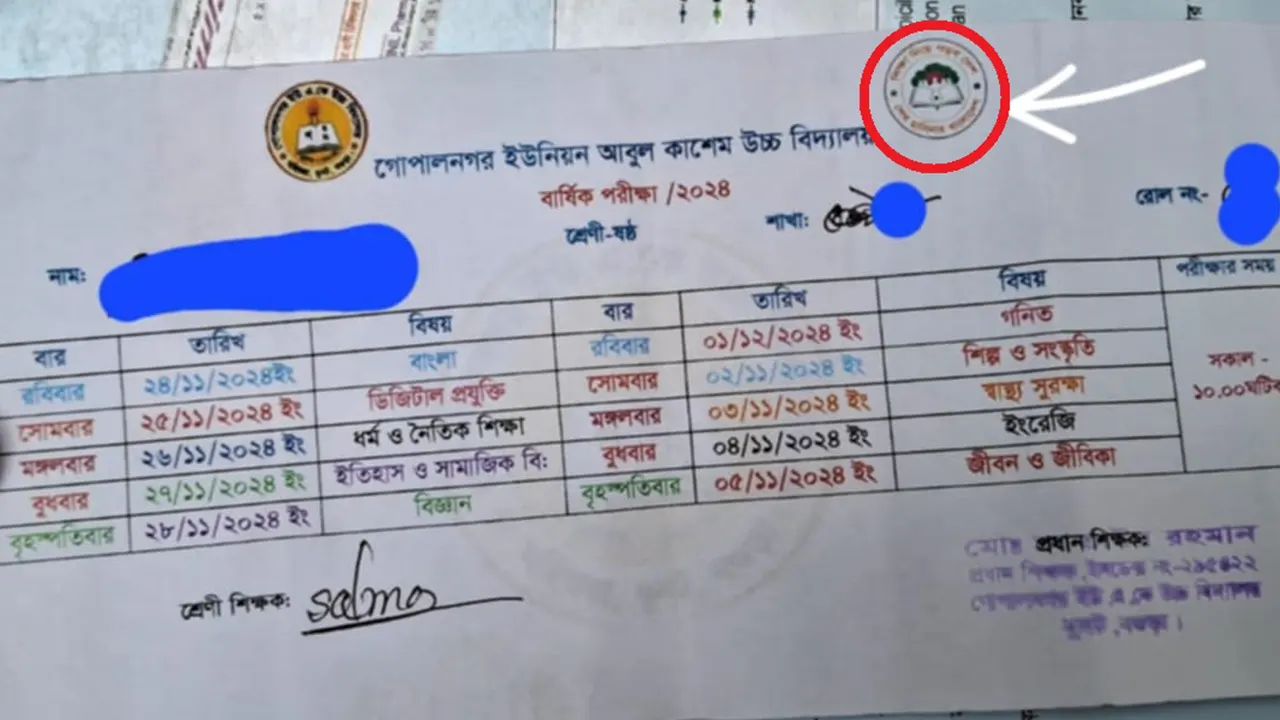 গোপালনগর ইউনিয়ন আবুল কাশেম উচ্চ বিদ্যালয়
বার্ষিক পরীক্ষা /২০২৪
শ্রেণী-ষষ্ঠ
শাখা:
রোল নং-
নাম:
বার তারিখ বিষয় বার তারিখ বিষয় পরীক্ষার সময়
রবিবার ২৪/১১/২০২৪ইং বাংলা রবিবার ০১/১২/২০২৪ ইং গনিত
সোমবার ২৫/১১/২০২৪ ইং ডিজিটাল প্রযুক্তি সোমবার ০২/১১/২০২৪ ইং শিল্প ও সংস্কৃতি
মঙ্গলবার ২৬/১১/২০২৪ ইং ধর্ম ও নৈতিক শিক্ষা মঙ্গলবার ০৩/১১/২০২৪ ইং স্বাস্থ্য সুরক্ষা
বুধবার ২৭/১১/২০২৪ ইং ইতিহাস ও সামাজিক বি: বুধবার ০৪/১১/২০২৪ ইং ইংরেজি
বৃহস্পতিবার ২৮/১১/২০২৪ ইং বিজ্ঞান বৃহস্পতিবার ০৫/১১/২০২৪ ইং জীবন ও জীবিকা
সকাল -
১০.০০ঘটিকা
শ্রেণী শিক্ষক: salma
প্রধান শিক্ষক: রহমান
প্রধান শিক্ষক